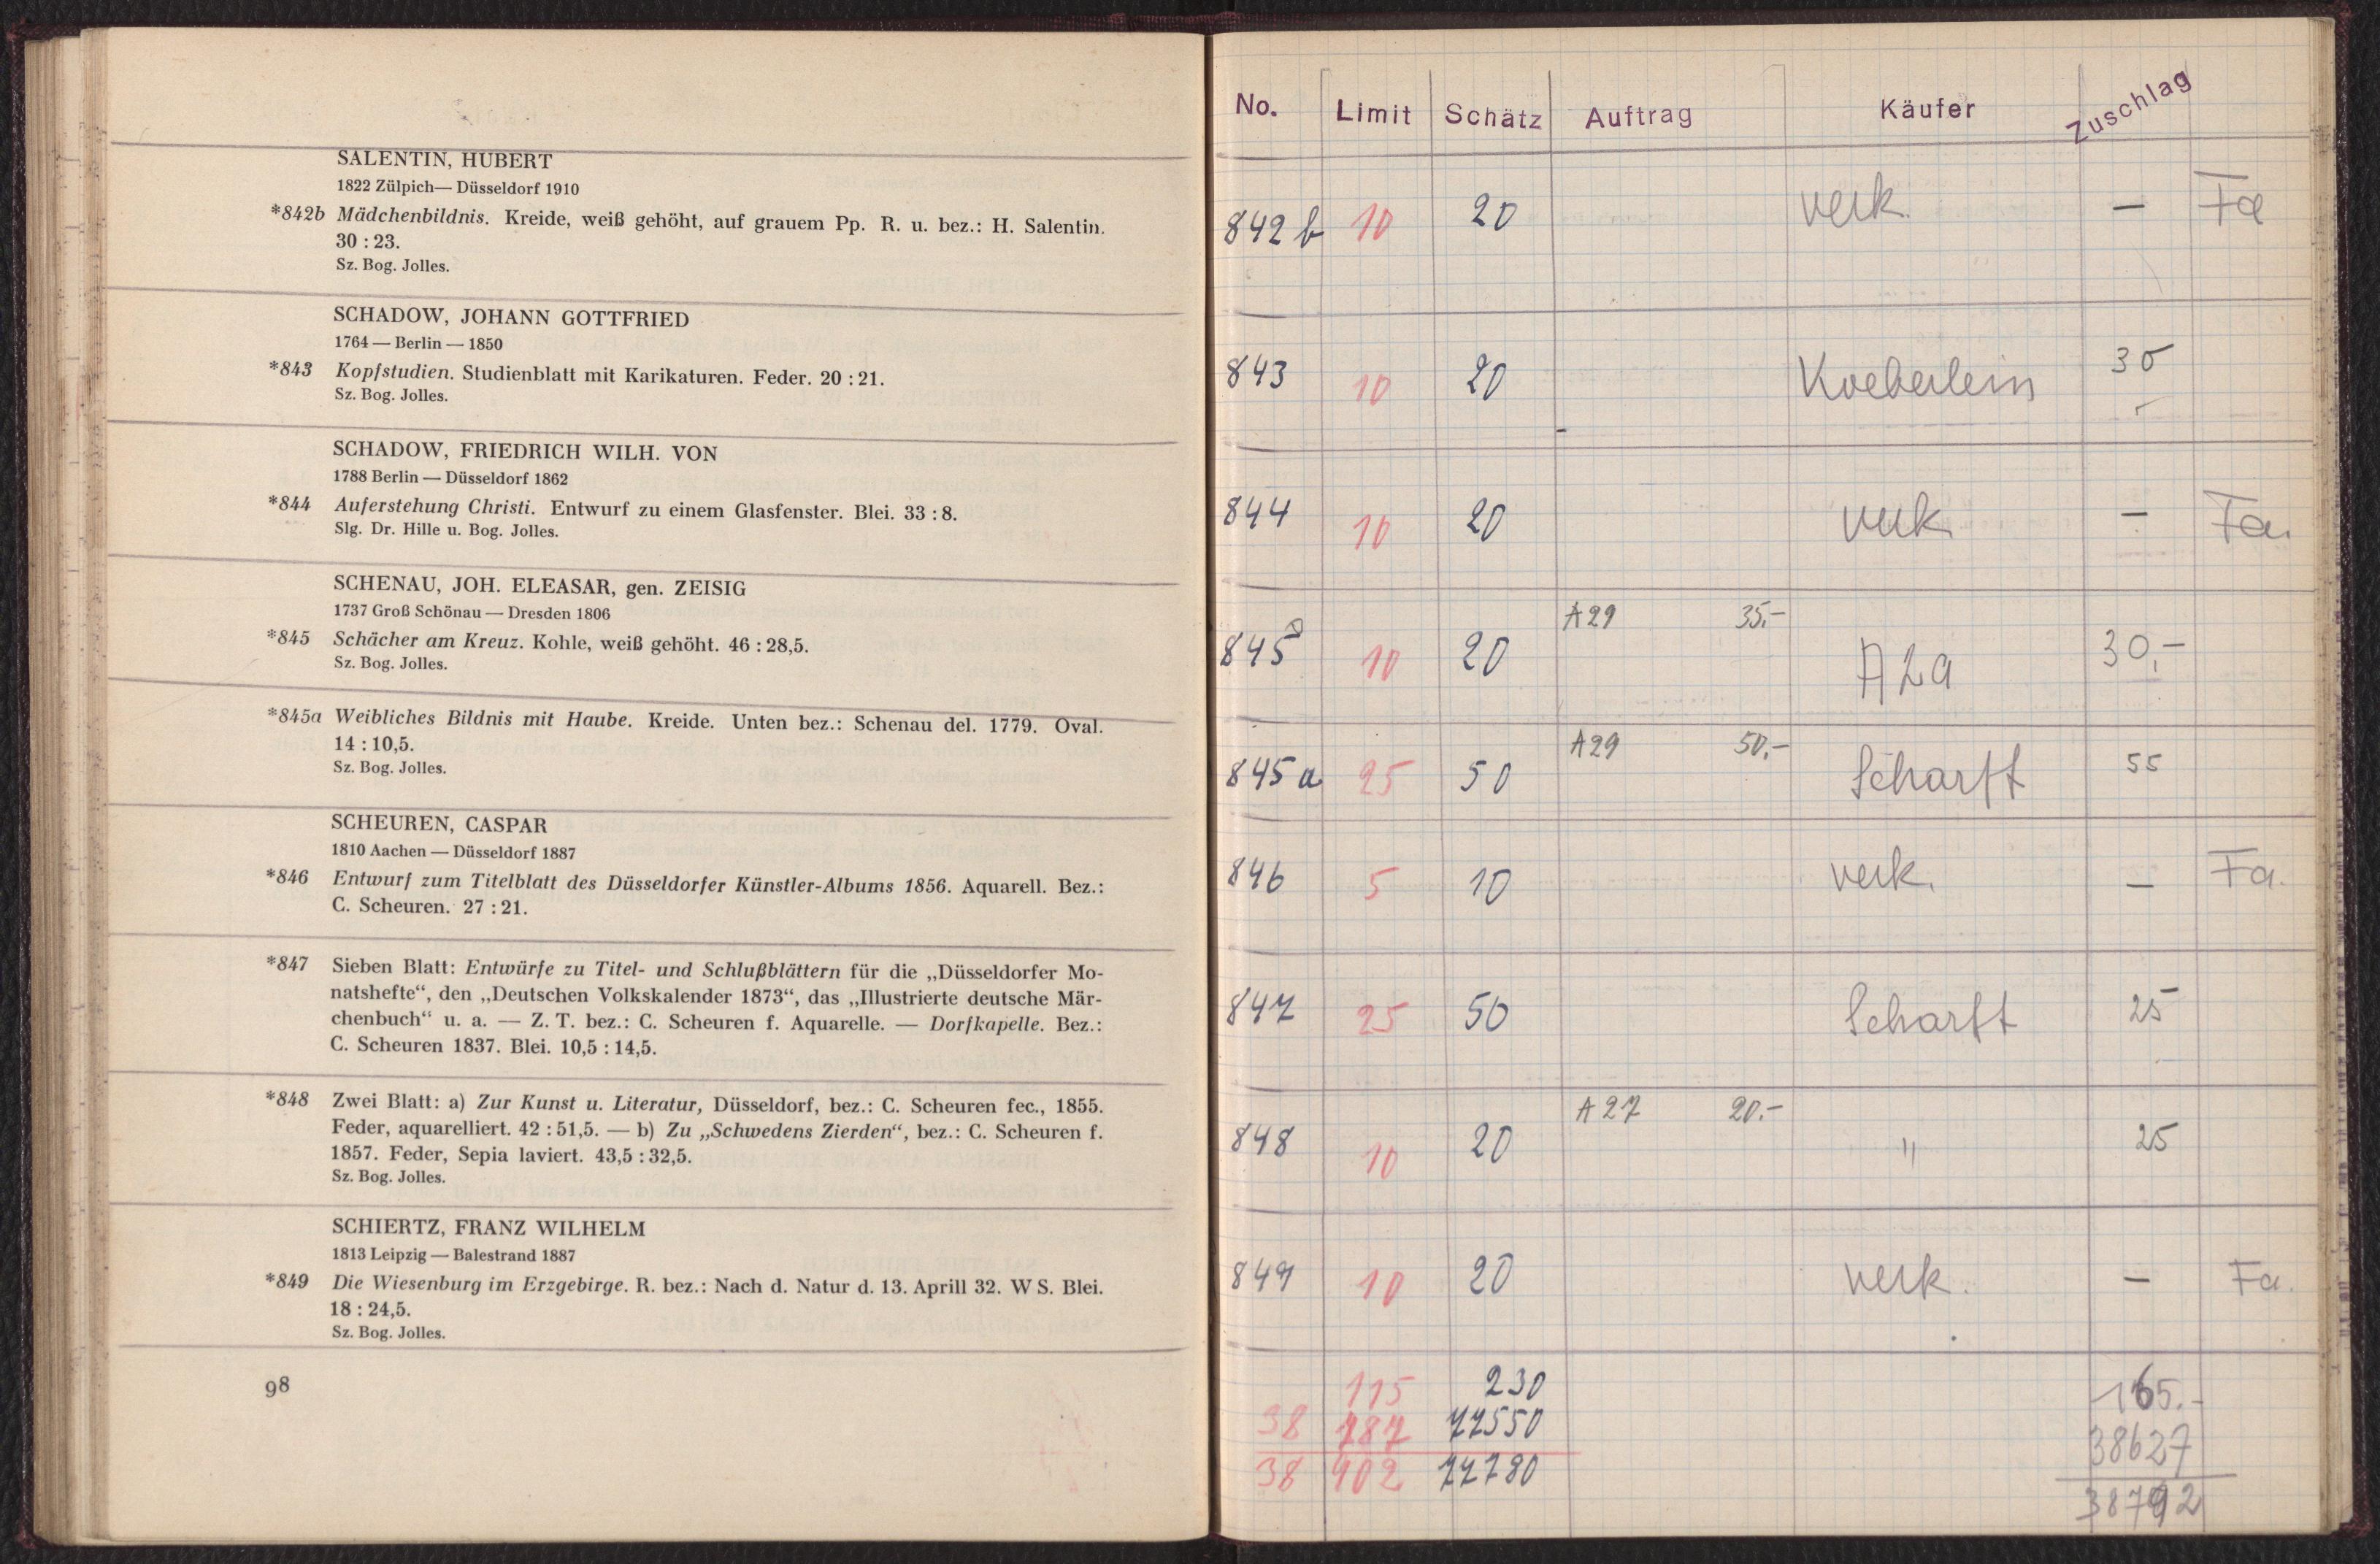 SALENTIN, HUBERT
1822 Zülpich— Düsseldorf 1910
*842b Mädchenbildnis. Kreide, weiß gehöht, auf grauem Pp. R. u. bez.: H. Salentin.
30 : 23.
Sz. Bog. Jolles.
SCHADOW, JOHANN GOTTFRIED
1764 — Berlin — 1850
*843 Kopfstudien. Studienblatt mit Karikaturen. Feder. 20 : 21.
Sz. Bog. Jolles.
SCHADOW, FRIEDRICH WILH. VON
1788 Berlin — Düsseldorf 1862
*844 Auferstehung Christi. Entwurf zu einem Glasfenster. Blei. 33 : 8.
Slg. Dr. Hille u. Bog. Jolles.
SCHENAU, JOH. ELEASAR, gen. ZEISIG
1737 Groß Schönau — Dresden 1806
*845 Schächer am Kreuz. Kohle, weiß gehöht. 46 : 28,5.
Sz. Bog. Jolles.
*845a Weibliches Bildnis mit Haube. Kreide. Unten bez.: Schenau del. 1779. Oval.
14 : 10,5.
Sz. Bog. Jolles.
SCHEUREN, CASPAR
1810 Aachen — Düsseldorf 1887
*846 Entwurf zum Titelblatt des Düsseldorfer Künstler-Albums 1856. Aquarell. Bez.:
C. Scheuren. 27 : 21.
*847 Sieben Blatt: Entwürfe zu Titel- und Schlußblättern für die „Düsseldorfer Mo-
natshefte“, den „Deutschen Volkskalender 1873“, das „Illustrierte deutsche Mär-
chenbuch“ u. a. — Z. T. bez.: C. Scheuren f. Aquarelle. — Dorfkapelle. Bez.:
C. Scheuren 1837. Blei. 10,5 : 14,5.
*848 Zwei Blatt: a) Zur Kunst u. Literatur, Düsseldorf, bez.: C. Scheuren fec., 1855.
Feder, aquarelliert. 42 : 51,5. — b) Zu „Schwedens Zierden“, bez.: C. Scheuren f.
1857. Feder, Sepia laviert. 43,5 : 32,5.
Sz. Bog. Jolles.
SCHIERTZ, FRANZ WILHELM
1813 Leipzig — Balestrand 1887
*849 Die Wiesenburg im Erzgebirge. R. bez.: Nach d. Natur d. 13. Aprill 32. W S. Blei.
18 : 24,5.
Sz. Bog. Jolles.
98
No. Limit Schätz Auftrag Käufer Zuschlag
842 b 10 20 verk. — Fa
843 10 20 Koeberlein 30
844 10 20 verk. — Fa.
A29 35,-
845 10 20 A29 30,-
A29 50,-
845 a 25 50 Scharff 55
846 5 10 verk. — Fa.
847 25 50 Scharff 25
A 27 20.-
848 10 20 " 25
849 10 20 verk. — Fa.
115 230 165.-
38 287 77550 38627
38 402 77780 38792